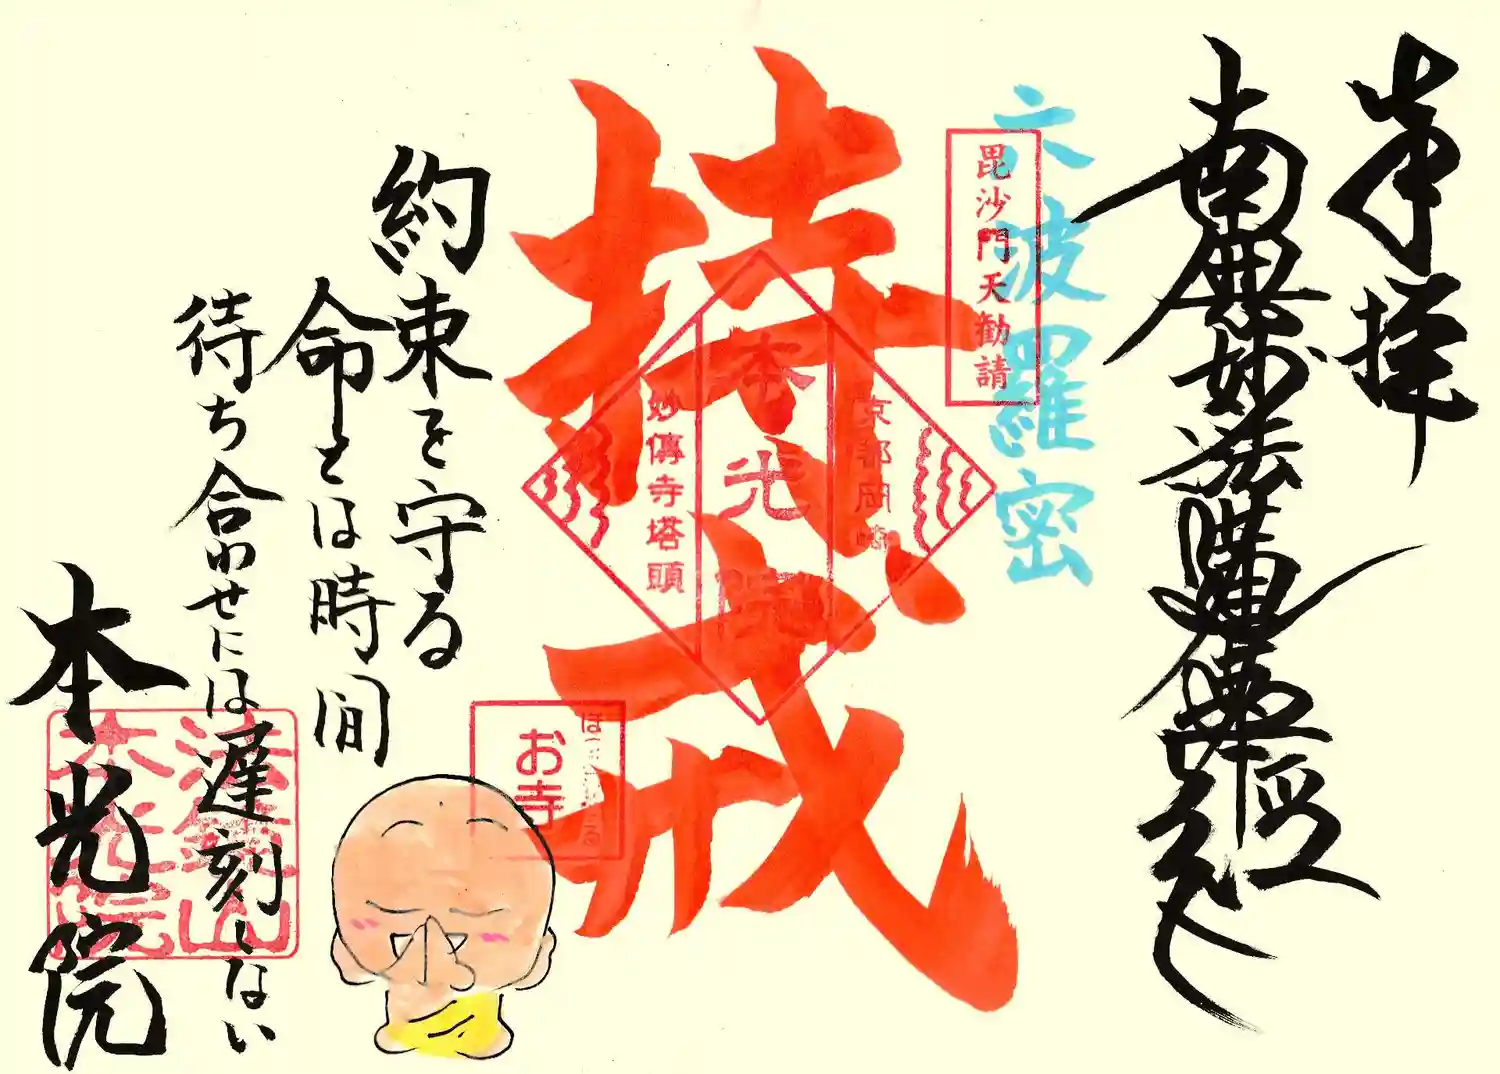 奉拝
南無妙法蓮華経
六波羅密
毘沙門天勧請
持戒
京都岡崎
本光院
妙傳寺塔頭
お寺
約束を守る
命とは時間
待ち合わせには遅刻しない
本光院